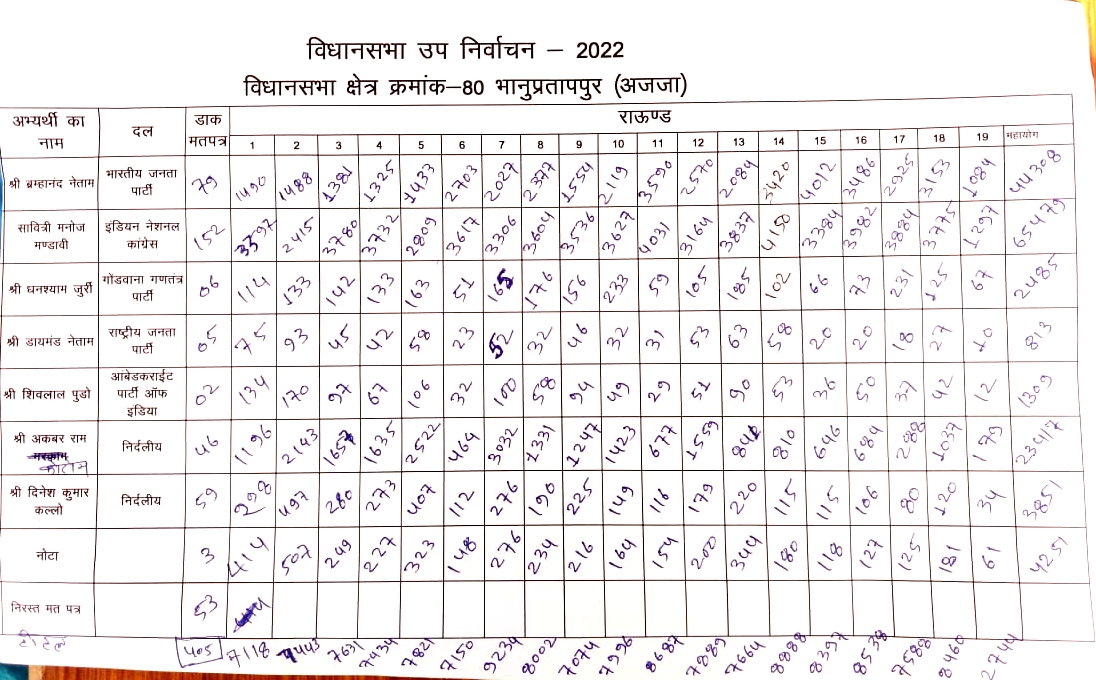 विधानसभा उप निर्वाचन – 2022
विधानसभा क्षेत्र क्रमांक–80 भानुप्रतापपुर (अजजा)
अभ्यर्थी का नाम दल डाक मतपत्र राऊण्ड
1 2 3 4 5 6 7 8 9 10 11 12 13 14 15 16 17 18 19 महायोग
श्री ब्रम्हानंद नेताम भारतीय जनता पार्टी 79 1490 1488 1381 1325 1433 2703 2027 2377 1554 2119 3590 2570 2084 3420 4012 3486 2925 3153 1084 44308
सावित्री मनोज मण्डावी इंडियन नेशनल कांग्रेस 152 3397 2415 3780 3732 2809 3617 3306 3604 3536 3627 4031 3164 3837 4150 3384 3982 3884 3775 1297 65479
श्री घनश्याम जुर्री गोंडवाना गणतंत्र पार्टी 06 114 133 142 133 163 51 165 176 156 233 59 105 185 102 66 73 231 125 67 2485
श्री डायमंड नेताम राष्ट्रीय जनता पार्टी 05 75 93 45 42 58 23 52 32 46 32 31 53 63 58 20 20 18 27 10 813
श्री शिवलाल पुडो आंबेडकराईट पार्टी ऑफ इंडिया 02 134 170 97 67 106 32 100 58 94 49 29 51 90 53 36 50 37 42 12 1309
श्री अकबर राम कोर्राम निर्दलीय 46 1196 2143 1657 1635 2522 464 3032 1331 1247 1423 677 1559 841 810 646 694 288 1037 179 23417
श्री दिनेश कुमार कल्लो निर्दलीय 59 298 497 280 273 407 112 276 190 225 149 116 179 220 115 115 106 80 120 34 3851
नोटा 3 414 507 249 227 323 148 276 234 216 164 154 200 344 180 118 127 125 181 61 4251
निरस्त मत पत्र 53
टोटल 405 7118 7443 7631 7434 7821 7150 9234 8002 7074 7996 8687 7889 7664 8888 8397 8538 7588 8460 2744